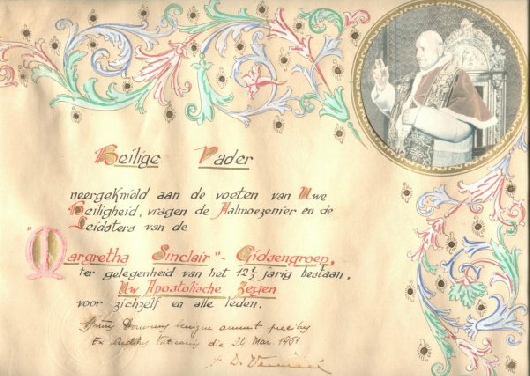 Heilige Vader
neergeknield aan de voeten van Uwe
Heiligheid, vragen de Aalmoezenier en de
Leidsters van de
"Margretha Sinclair"- Gidsengroep,
ter gelegenheid van het 12½ jarig bestaan,
Uw Apostolische Zegen
voor zichzelf en alle leden.
annuit precibus
Ex Aedibus Vaticanis die 26 Mar. 1961